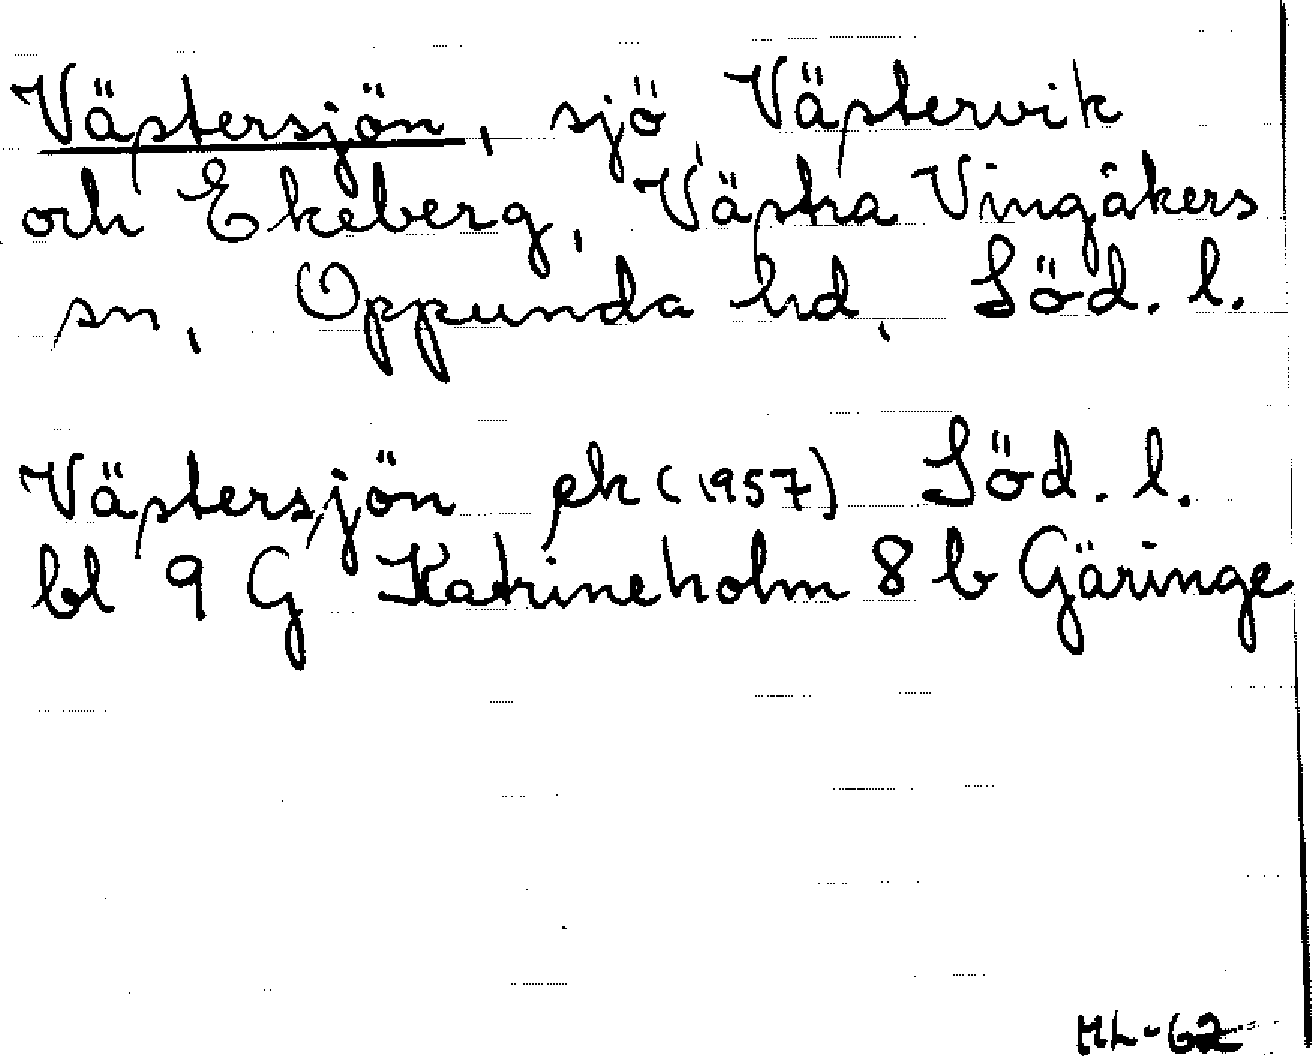 Västersjön, sjö, Västervik
och Ekeberg, Västra Vingåkers
sn, Oppunda hd, Söd. l.
Västersjön ek (1957) Söd. l.
bl 9 G Katrineholm 8 b Gäringe
ML-62